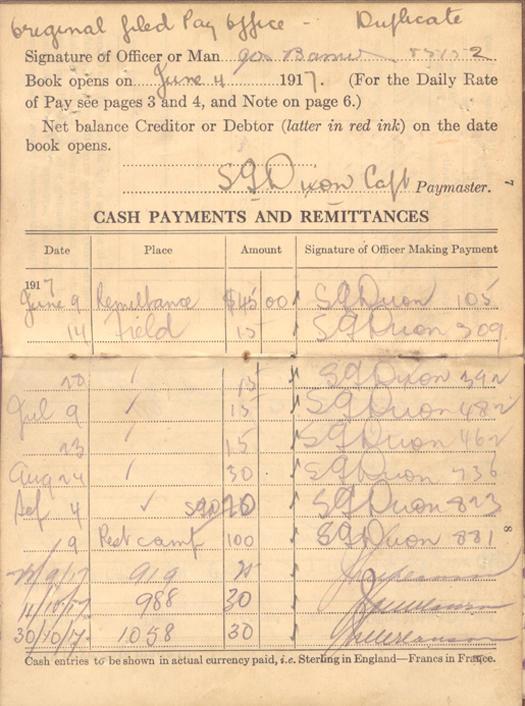 Original filed Pay Office - Duplicate
Signature of Officer or Man
Book opens on June 4 1917. (For the Daily Rate
of Pay see pages 3 and 4, and Note on page 6.)
Net balance Creditor or Debtor (latter in red ink) on the date
book opens.
S G Dixon Capt Paymaster.
7
CASH PAYMENTS AND REMITTANCES
Date Place Amount Signature of Officer Making Payment
1917
June 9 Remittance $45 00 S G Dixon 105
14 Field 15 S G Dixon 309
20 / 15 S G Dixon 392
Jul 9 / 15 S G Dixon 482
23 / 15 S G Dixon 462
Aug 24 / 30 S G Dixon 736
Sep 4 / SGD S G Dixon 823
19 Rest camp 100 S G Dixon 881
8
/9/17 919
11/10/17 988 30
30/10/17 1058 30
Cash entries to be shown in actual currency paid, i.e. Sterling in England—Francs in France.